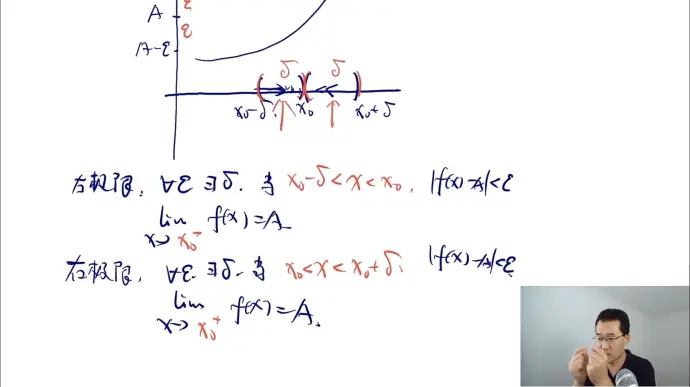 ε
A
ε
A-ε
δ δ
x₀-δ x₀ x₀+δ
左极限, ∀ε ∃δ. 当 x₀-δ<x<x₀, |f(x)-A|<ε
lim f(x)=A
x→x₀⁻
右极限, ∀ε ∃δ. 当 x₀<x<x₀+δ. |f(x)-A|<ε
lim f(x)=A.
x→x₀⁺